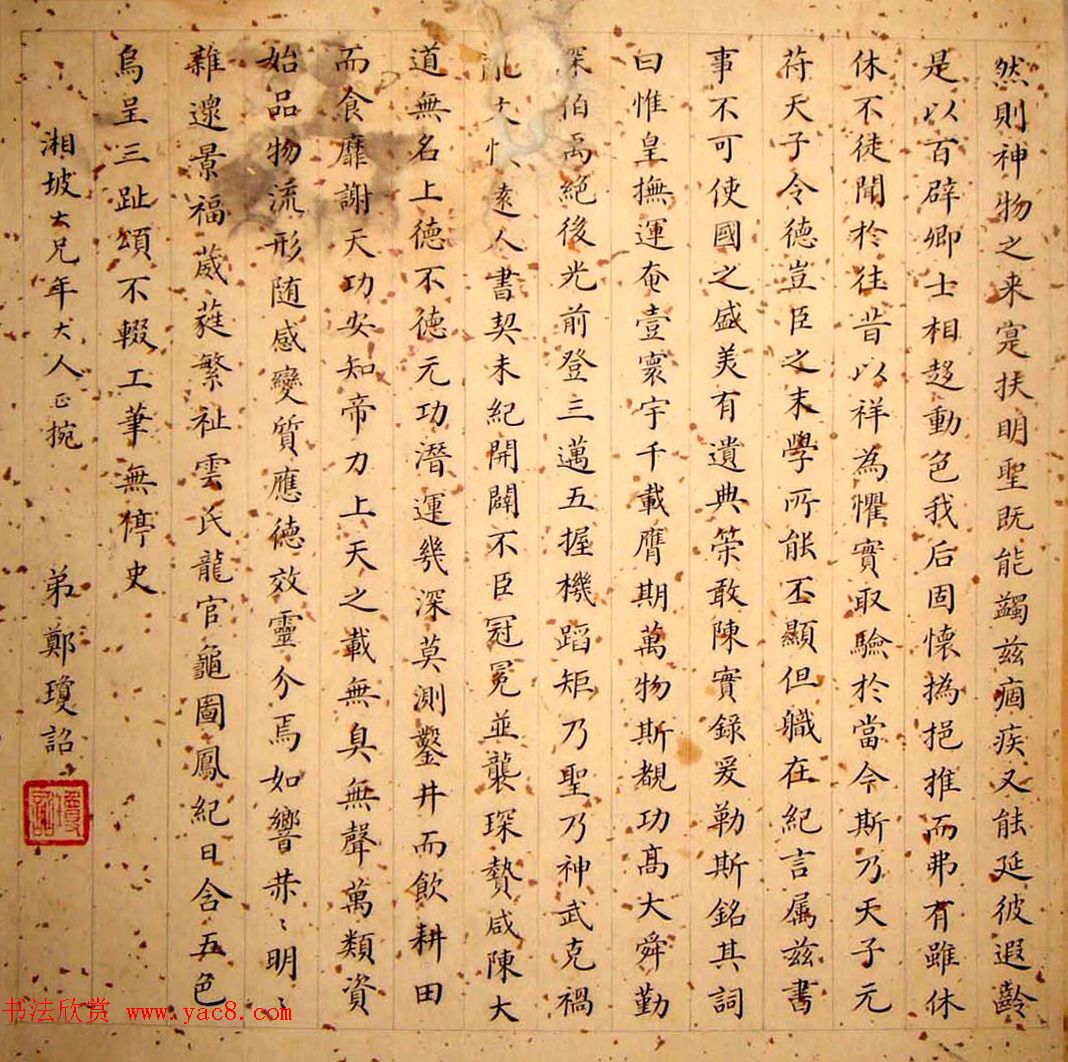 然則神物之来寔扶明聖既能蠲兹痼疾又能延彼遐齡
是以百辟卿士相趍動色我后固懷撝挹推而弗有雖休
休不徒聞於往昔以祥為懼實取驗於當今斯乃天子元
符天子令德豈臣之末學所能丕顯但軄在紀言属兹書
事不可使國之盛美有遺典䇿敢陳實録爰勒斯銘其詞
曰惟皇撫運奄壹寰宇千載膺期萬物斯覩功髙大舜勤
深伯禹絶後光前登三邁五握機蹈矩乃聖乃神武克禍
亂文懷遠人書契未紀開闢不臣冠冕並襲琛贄咸陳大
道無名上德不德元功潛運幾深莫測鑿井而飲耕田
而食靡謝天功安知帝力上天之載無臭無聲萬類資
始品物流形随感變質應德效靈介焉如響赫〻明〻
雜遝景福葳蕤繁祉雲氏龍官龜圖鳳紀日含五色
烏呈三趾頌不輟工筆無停史
湘坡大兄年大人正捥 弟鄭瓊詔
瓊詔
书法欣赏 www.yac8.com